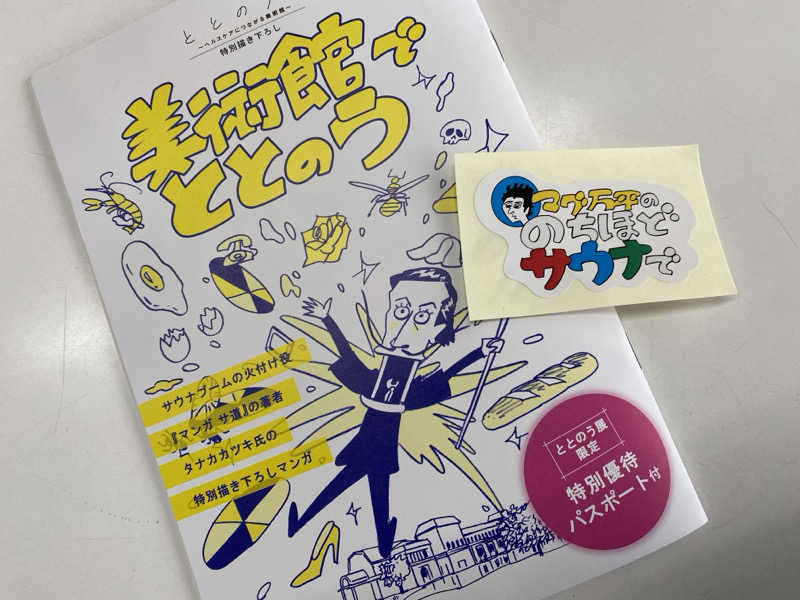 ととのう
〜ヘルスケアにつながる美術館〜
特別描き下ろし
美術館で
ととのう
マグ万平の
のちほど
サウナで
サウナブームの火付け役
『マンガ サ道』の著者
タナカカツキ氏の
特別描き下ろしマンガ
ととのう展
限定
特別優待
パスポート付